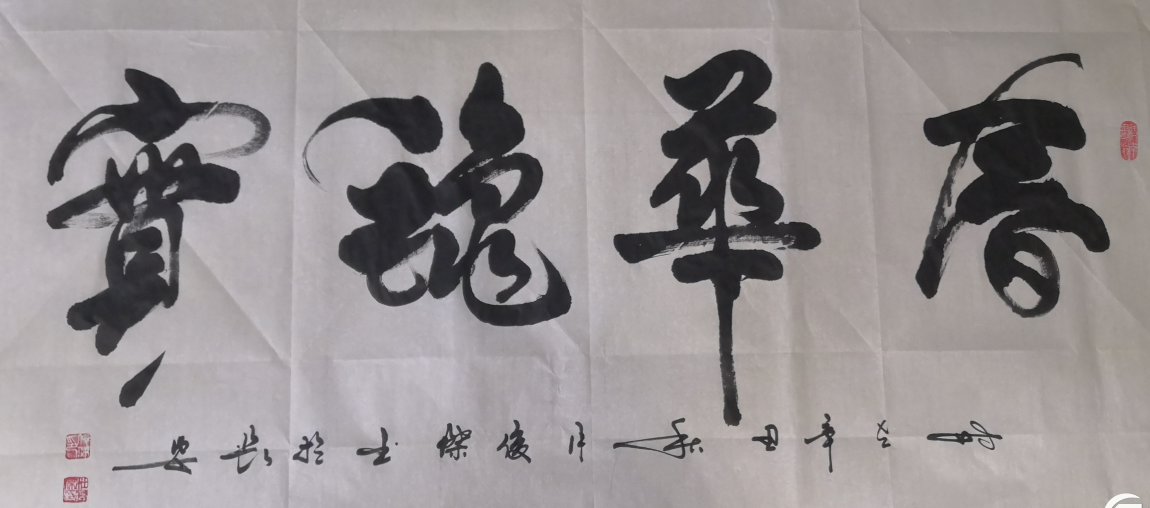 春華龝實
時在辛丑秋月俊傑书於長安